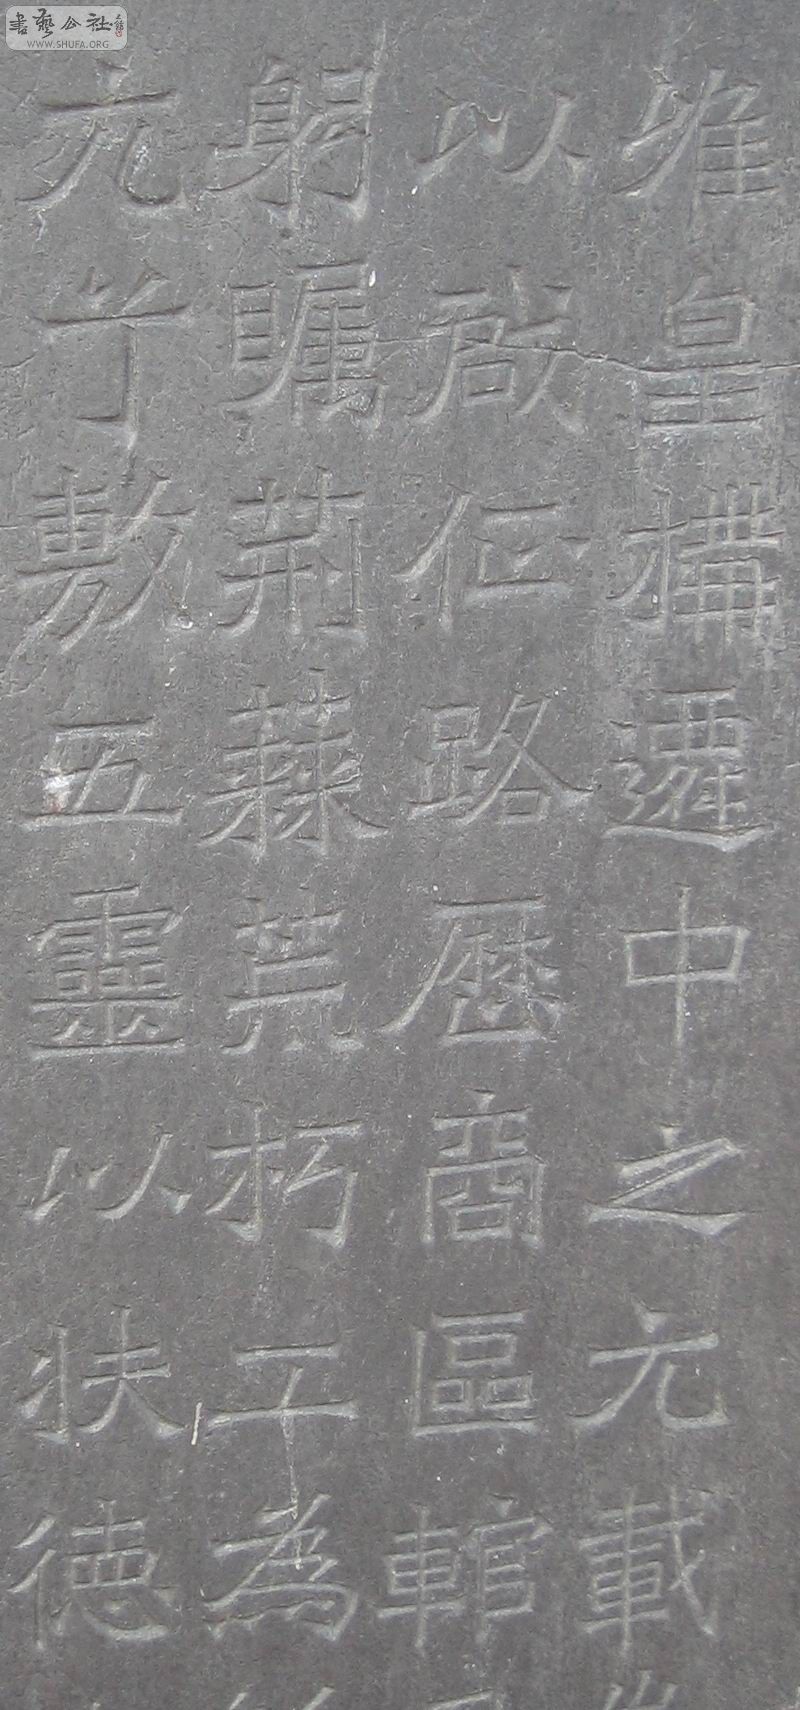 書藝公社
WWW.SHUFA.ORG
惟皇構遷中之元載
以啟征路歷商區轄
躬矚荊蕀荒朽工為
亢兮敷五靈以扶德